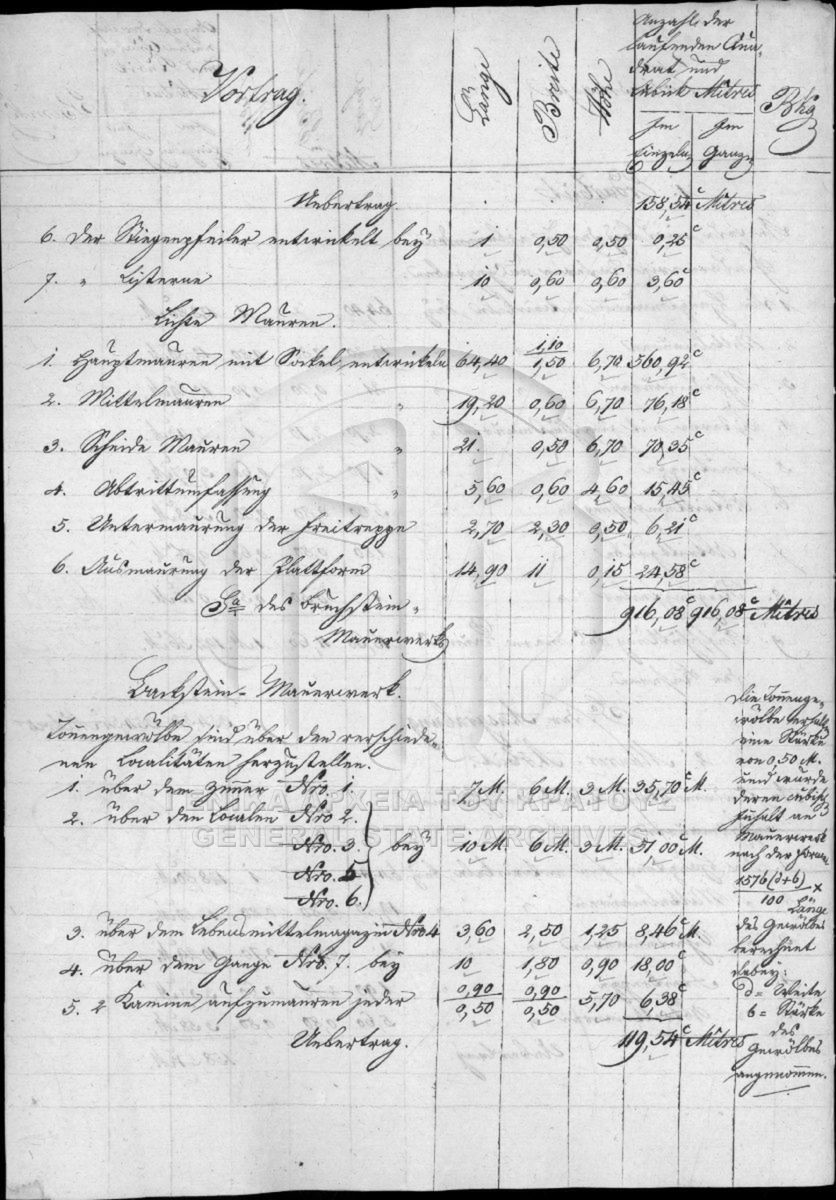 Vortrag.
Länge
Breite
Höhe
Anzahl der
laufenden Qua-
drat und
Kubick Mètres
Im Einzeln
Im Ganzen
Bkg
Uebertrag. 158,54 c Mètres
6. Der Stiegenpfeiler entwickelt bey 1 0,50 0,50 0,25 c
7. " Cisterne 10 0,60 0,60 3,60 c
Lichte Mauren.
1. Hauptmauren mit Sockel entwickeln 64,40 1,10/1,50 6,70 560,92 c
2. Mittelmauren " 19,20 0,60 6,70 76,18 c
3. Scheide Mauren " 21. 0,50 6,70 70,35 c
4. Abtrittumfassung " 5,60 0,60 4,60 15,45 c
5. Untermaurung der Freitreppe 2,70 2,30 0,50 6,21 c
6. Ausmaurung der Plattform 14,90 11 0,15 24,58 c
Sa des Bruchstein- 916,08 c 916,08 c Mètres
Mauerwerks
Backstein-Mauerwerk.
Tonnengewölbe sind über den verschiede-
nen Localitäten herzustellen.
1. über dem Zimmer Nro. 1. 7 M. 6 M. 3 M. 35,70 c M.
2. über den Localen Nro 2.
Nro. 3. bey 10 M. 6 M. 3 M. 51,00 c M.
Nro. 5
Nro. 6.
3. über dem Lebensmittelmagazin Nro 4 3,60 2,50 1,25 8,46 c M.
4. über dem Gange Nro. 7. bey 10 1,80 0,90 18,00 c
5. 2 Kamine aufzumauren jeder 0,90/0,50 0,90/0,50 5,70 6,38 c
Uebertrag. 119,54 c Mètres
Die Tonnenge-
wölbe erhalten
eine Stärke
von 0,50 M.
und wurde
deren cubisch
Inhalt an
Mauerwerk
nach der Formel
1576(d+b)/100 x
Länge
des Gewölbes
berechnet
dabey:
d = Weite
b = Stärke
des
Gewölbes
angenommen.
ΓΕΝΙΚΑ ΑΡΧΕΙΑ ΤΟΥ ΚΡΑΤΟΥΣ
GENERAL STATE ARCHIVES